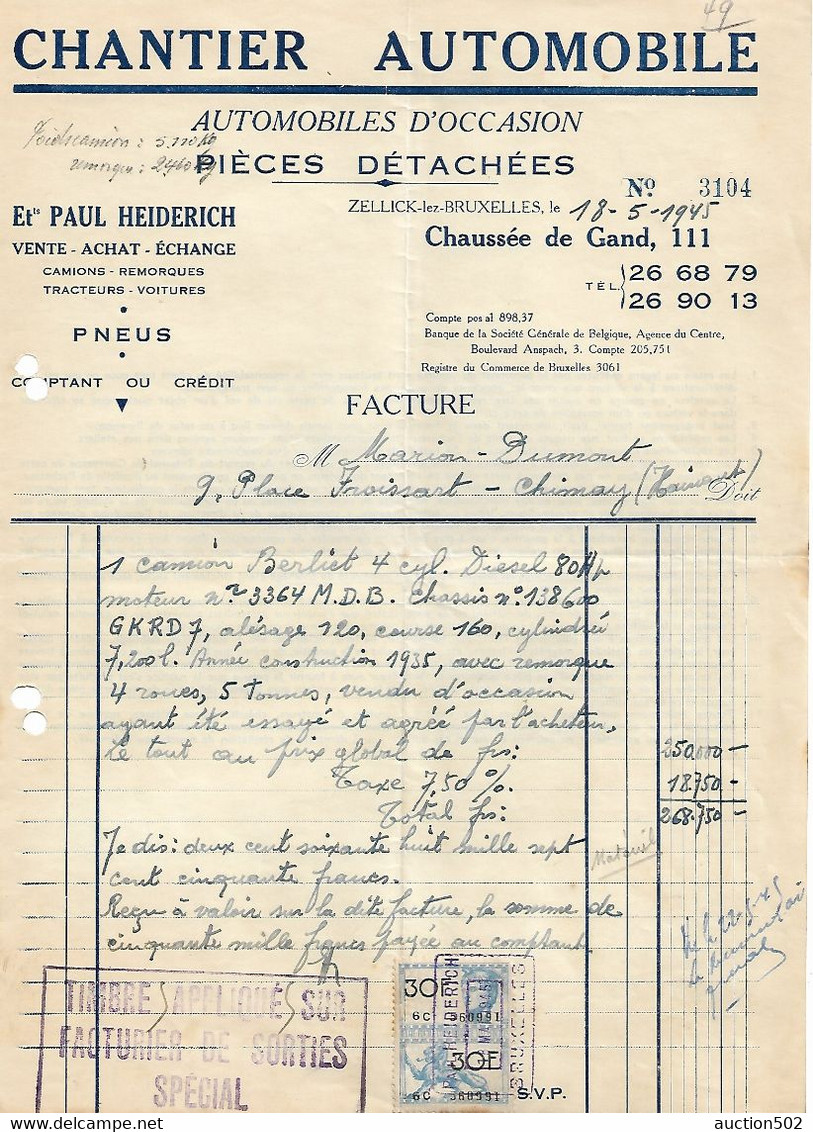 49
CHANTIER AUTOMOBILE
AUTOMOBILES D'OCCASION
Poids camion : 5.110 Kg
remorque : 2460 Kg
PIÈCES DÉTACHÉES
No 3104
Ets PAUL HEIDERICH
ZELLICK-lez-BRUXELLES, le 18-5-1945
VENTE - ACHAT - ÉCHANGE
Chaussée de Gand, 111
CAMIONS - REMORQUES
TRACTEURS - VOITURES
TÉL. 26 68 79
26 90 13
PNEUS
Compte pos al 898,37
Banque de la Société Générale de Belgique, Agence du Centre,
Boulevard Anspach, 3. Compte 205,751
Registre du Commerce de Bruxelles 3061
COMPTANT OU CRÉDIT
FACTURE
M Marion - Dumont
9, Place Froissart - Chimay (Hainaut)
Doit
1 camion Berliet 4 cyl. Diesel 80 Hp
moteur n° 3364 M.D.B. Chassis n° 138600
GKRD7, alésage 120, course 160, cylindrée
7,200 l. Année construction 1935, avec remorque
4 roues, 5 Tonnes, vendu d'occasion
ayant été essayé et agréé par l'acheteur,
Le tout au prix global de frs: 250.000 -
Taxe 7,50 %. 18.750 -
Total frs: 268.750 -
Je dis: deux cent soixante huit mille sept
cent cinquante francs.
Matériel
Reçu à valoir sur la dite facture, la somme de
cinquante mille francs payée au comptant.
22-5-45
TIMBRES APPLIQUÉS SUR
FACTURIER DE SORTIES
SPÉCIAL
30F
6C 360991
30F
6C 360991
PAUL HEIDERICH
MAI 1945
BRUXELLES
S.V.P.
auction502